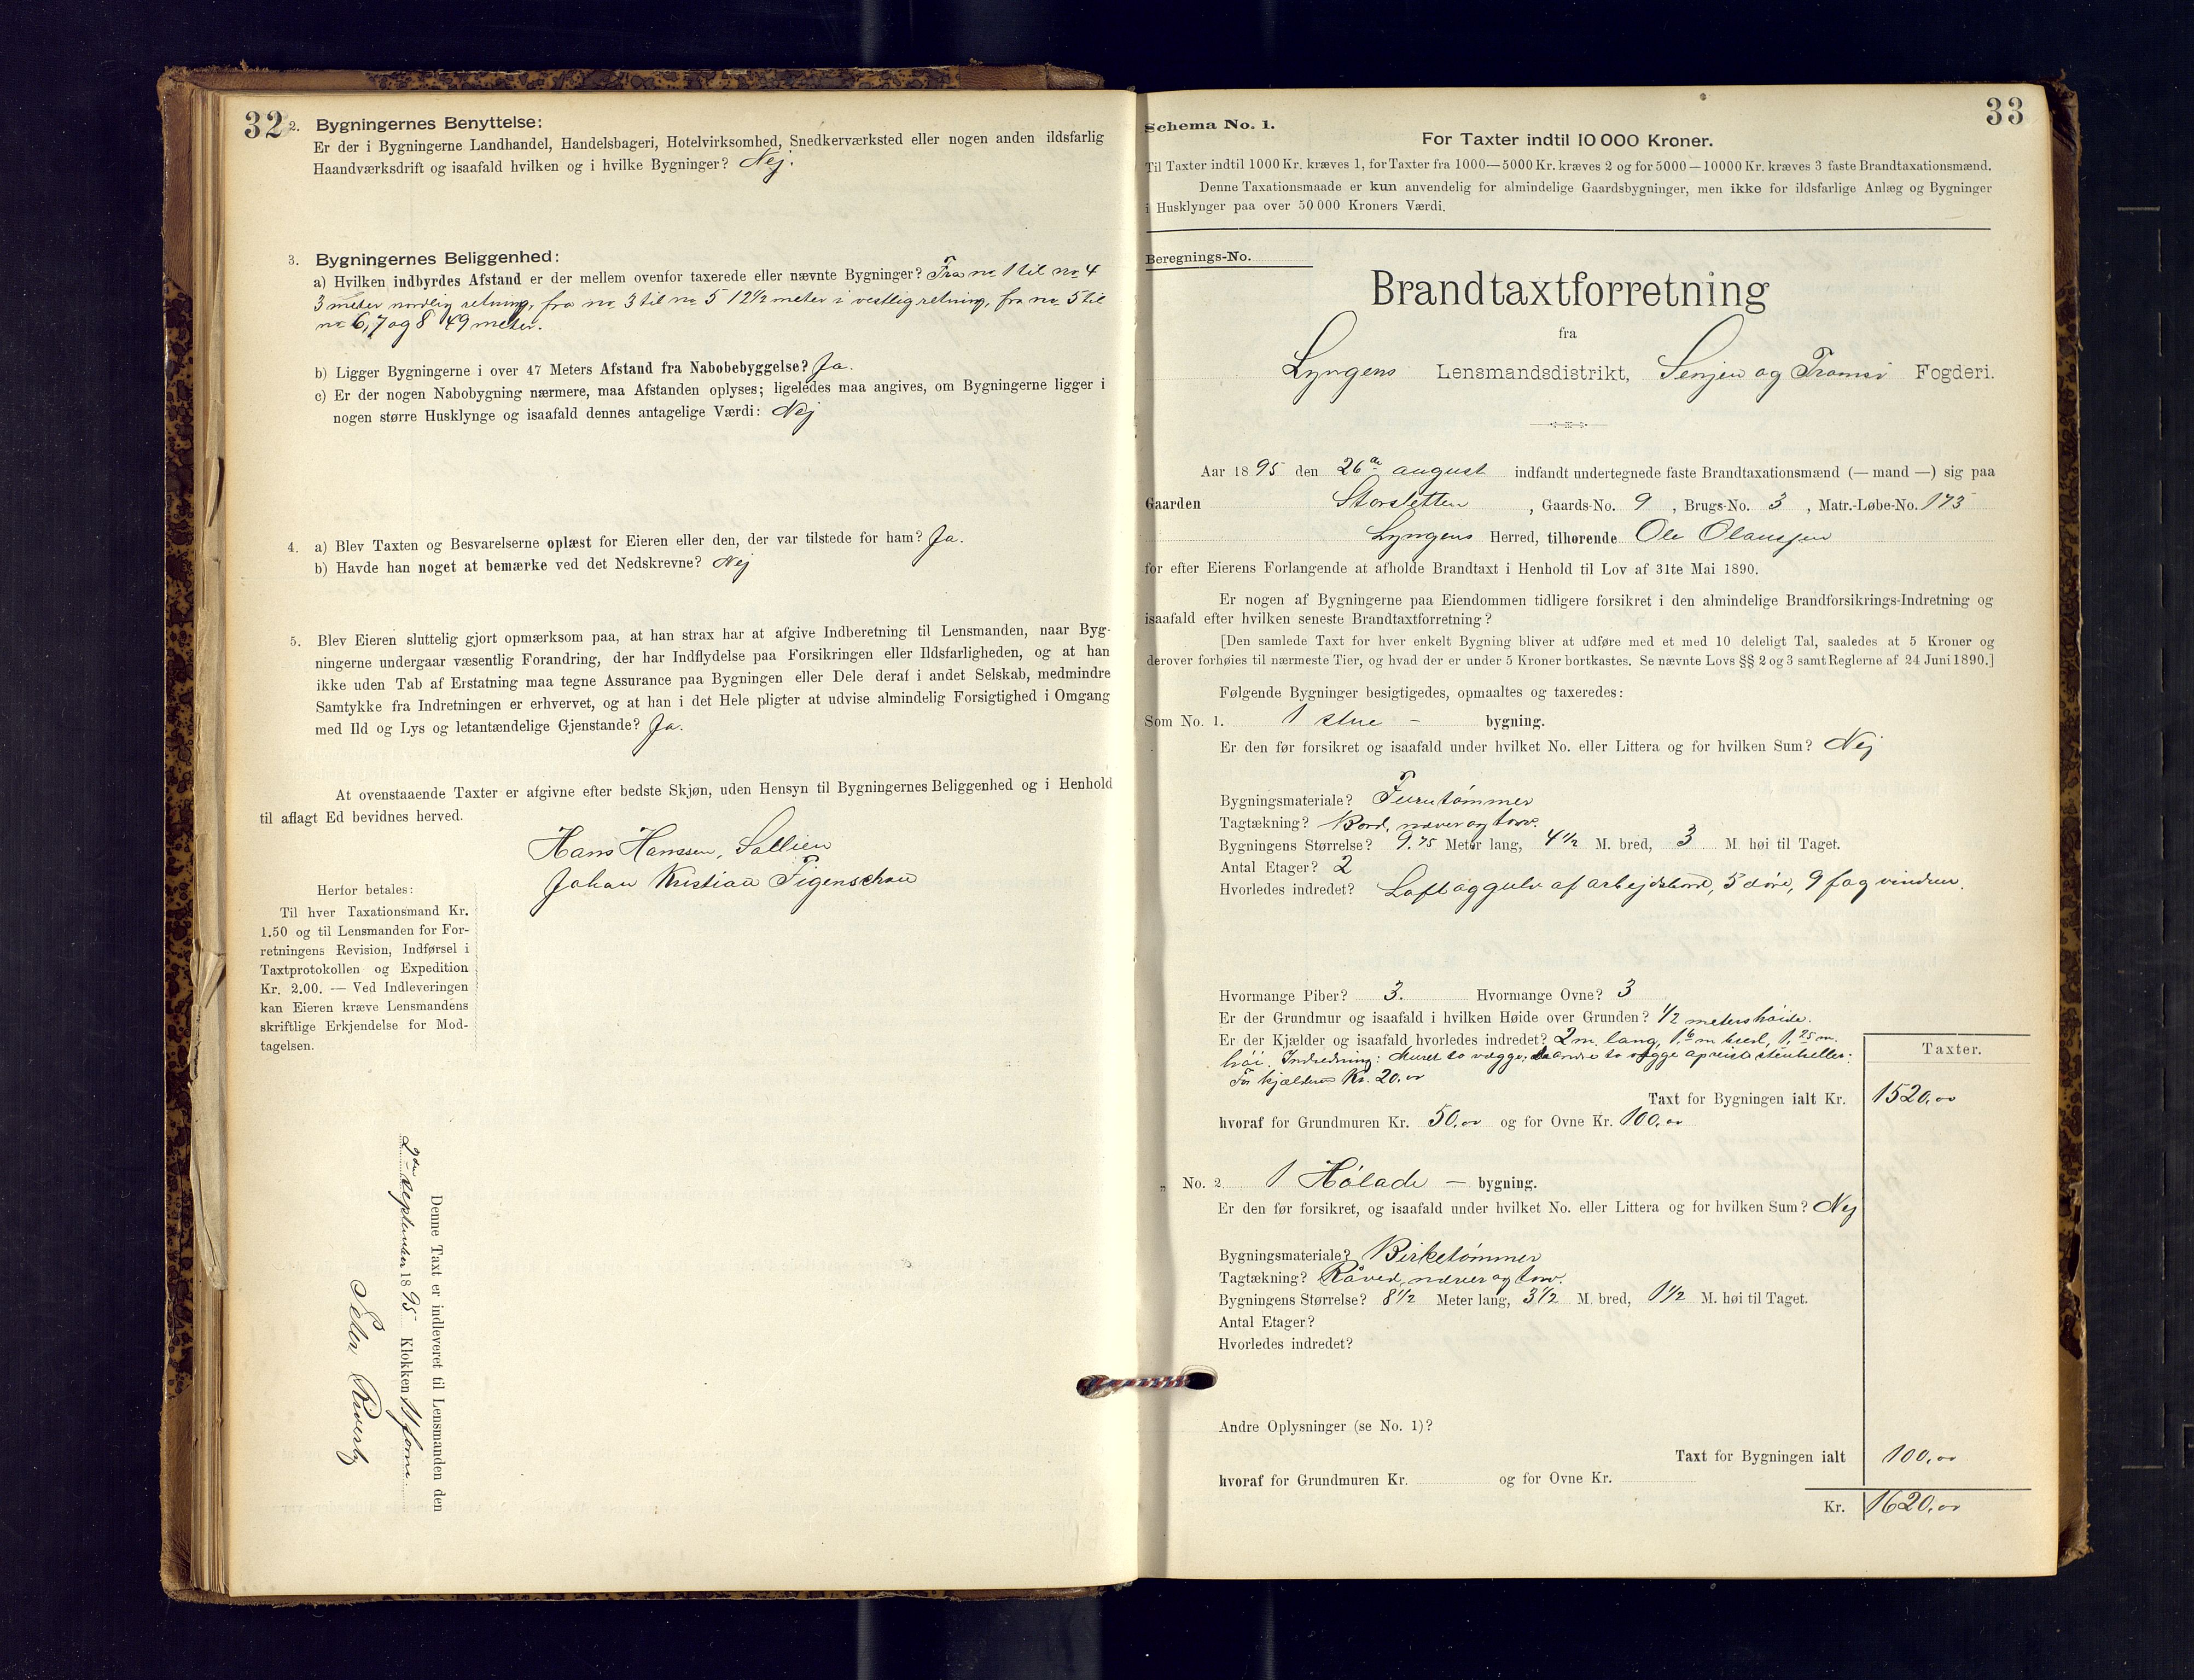 32
2. Bygningernes Benyttelse:
Er der i Bygningerne Landhandel, Handelsbageri, Hotelvirksomhed, Snedkerværksted eller nogen anden ildsfarlig
Haandværksdrift og isaafald hvilken og i hvilke Bygninger? Nej.
3. Bygningernes Beliggenhed:
a) Hvilken indbyrdes Afstand er der mellem ovenfor taxerede eller nævnte Bygninger? Fra no 1 til no 4
3 meter nordlig retning, fra no. 3 til no 5 12 1/2 meter i vestlig retning, fra no 5 til
no 6, 7 og 8 49 meter.
b) Ligger Bygningerne i over 47 Meters Afstand fra Nabobebyggelse? Ja.
c) Er der nogen Nabobygning nærmere, maa Afstanden oplyses; ligeledes maa angives, om Bygningerne ligger i
nogen større Husklynge og isaafald dennes antagelige Værdi: Nej
4. a) Blev Taxten og Besvarelserne oplæst for Eieren eller den, der var tilstede for ham? Ja.
b) Havde han noget at bemærke ved det Nedskrevne? Nej
5. Blev Eieren sluttelig gjort opmærksom paa, at han strax har at afgive Indberetning til Lensmanden, naar Byg-
ningerne undergaar væsentlig Forandring, der har Indflydelse paa Forsikringen eller Ildsfarligheden, og at han
ikke uden Tab af Erstatning maa tegne Assurance paa Bygningen eller Dele deraf i andet Selskab, medmindre
Samtykke fra Indretningen er erhvervet, og at han i det Hele pligter at udvise almindelig Forsigtighed i Omgang
med Ild og Lys og letantændelige Gjenstande? Ja.
At ovenstaaende Taxter er afgivne efter bedste Skjøn, uden Hensyn til Bygningernes Beliggenhed og i Henhold
til aflagt Ed bevidnes herved.
Hans Hanssen, Sollien
Johan Kristian Figenschau
Herfor betales:
Til hver Taxationsmand Kr.
1.50 og til Lensmanden for For-
retningens Revision, Indførsel i
Taxtprotokollen og Expedition
Kr. 2.00. — Ved Indleveringen
kan Eieren kræve Lensmandens
skriftlige Erkjendelse for Mod-
tagelsen.
Denne Taxt er indleveret til Lensmanden den
2den september 1895 Klokken 11 form
Peder
33
Schema No. 1.
For Taxter indtil 10 000 Kroner.
Til Taxter indtil 1000 Kr. kræves 1, for Taxter fra 1000—5000 Kr. kræves 2 og for 5000—10000 Kr. kræves 3 faste Brandtaxationsmænd.
Denne Taxationsmaade er kun anvendelig for almindelige Gaardsbygninger, men ikke for ildsfarlige Anlæg og Bygninger
i Husklynger paa over 50 000 Kroners Værdi.
Beregnings-No.
Brandtaxtforretning
fra
Lyngens Lensmandsdistrikt, Senjen og Tromsø Fogderi.
Aar 1895 den 26de august indfandt undertegnede faste Brandtaxationsmænd (— mand —) sig paa
Gaarden Storsletten, Gaards-No. 9, Brugs-No. 3, Matr.-Løbe-No. 173
Lyngens Herred, tilhørende Ole Olaussen
for efter Eierens Forlangende at afholde Brandtaxt i Henhold til Lov af 31te Mai 1890.
Er nogen af Bygningerne paa Eiendommen tidligere forsikret i den almindelige Brandforsikrings-Indretning og
isaafald efter hvilken seneste Brandtaxtforretning?
[Den samlede Taxt for hver enkelt Bygning bliver at udføre med et med 10 deleligt Tal, saaledes at 5 Kroner og
derover forhøies til nærmeste Tier, og hvad der er under 5 Kroner bortkastes. Se nævnte Lovs §§ 2 og 3 samt Reglerne af 24 Juni 1890.]
Følgende Bygninger besigtigedes, opmaaltes og taxeredes:
Som No. 1. 1 stue – bygning.
Er den før forsikret og isaafald under hvilket No. eller Littera og for hvilken Sum? Nej
Bygningsmateriale? Furutømmer
Tagtækning? Bord, næver og torv.
Bygningens Størrelse? 9.75 Meter lang, 4 1/2 M. bred, 3 M. høi til Taget.
Antal Etager? 2
Hvorledes indredet? Loft og gulv af arbejdsbord, 5 døre, 9 fag vinduer.
Hvormange Piber? 3. Hvormange Ovne? 3
Er der Grundmur og isaafald i hvilken Høide over Grunden? 1/2 meters høide.
Er der Kjælder og isaafald hvorledes indredet? 2 m. lang, 1.6 m bred, 1.25 m.
høi. Indredning: Muret to vægge, andre to vægge stenheller.
For kjælderen Kr. 20.00
Taxter.
Taxt for Bygningen ialt Kr. 1520.00
hvoraf for Grundmuren Kr. 50.00 og for Ovne Kr. 100.00
„ No. 2 1 Hølade – bygning.
Er den før forsikret, og isaafald under hvilket No. eller Littera og for hvilken Sum? Nej
Bygningsmateriale? Birketømmer
Tagtækning? Råved, næver og torv.
Bygningens Størrelse? 8 1/2 Meter lang, 3 1/2 M. bred, 1 1/2 M. høi til Taget.
Antal Etager?
Hvorledes indredet?
Andre Oplysninger (se No. 1)?
Taxt for Bygningen ialt 100.00
hvoraf for Grundmuren Kr. og for Ovne Kr.
Kr. 1620.00